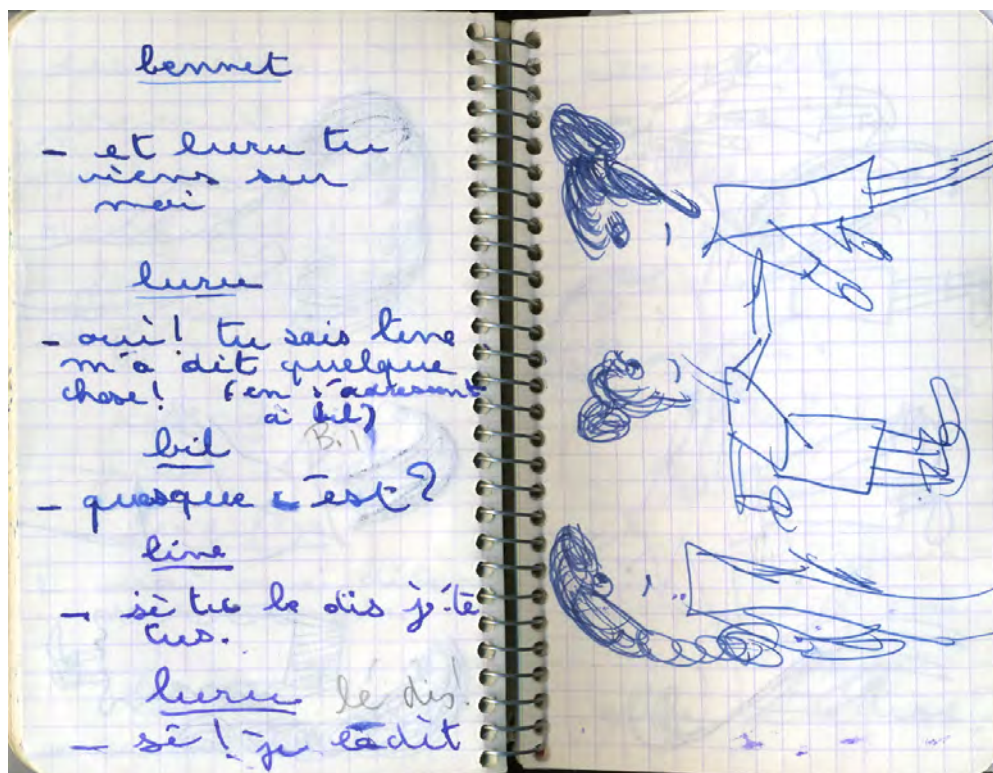 bennet
- et luru tu
viens sur
moi
luru
- oui! tu sais line
m'a dit quelque
chose! (en s'adressant
à bil)
Bil
bil
- quesque c'est?
line
- si tu le dis je te
tus.
luru le dis!
- si! je